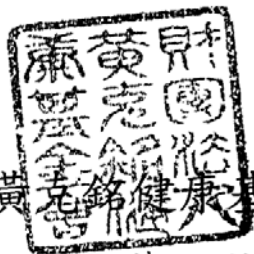 財團法人
黃克銘健
康基金會
黃克銘健康基